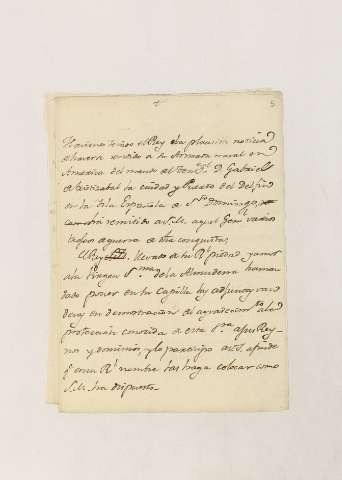 5
Haviendo tenido el Rey la plausible noticia
de haverse rendido a su Armada naval en
America del mando del Then.te Gral D. Gabriel
de Aristizabal la ciudad y Puerto del Delfin
en la isla Española de S.to Domingo,
remitido a S.M. aquel Gen.l varios
trofeos de guerra de dha conquista;
El Rey llevado de su R.l piedad y amor
a la Virgen S.ma de la Almudena ha man-
dado poner en su Capilla las adjuntas van-
deras en demostracion de agradecim.to a la
proteccion concedida de esta S.ra a sus Rey-
nos y dominios, y lo participo a V.S. a fin de
q.e en su R.l nombre las haga colocar como
S.M. ha dispuesto.